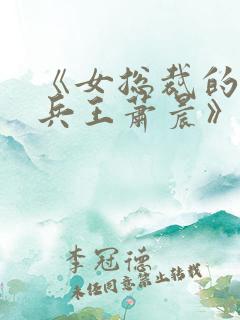 《女总裁的
兵王萧晨》
李冠德
未经同意禁止转载